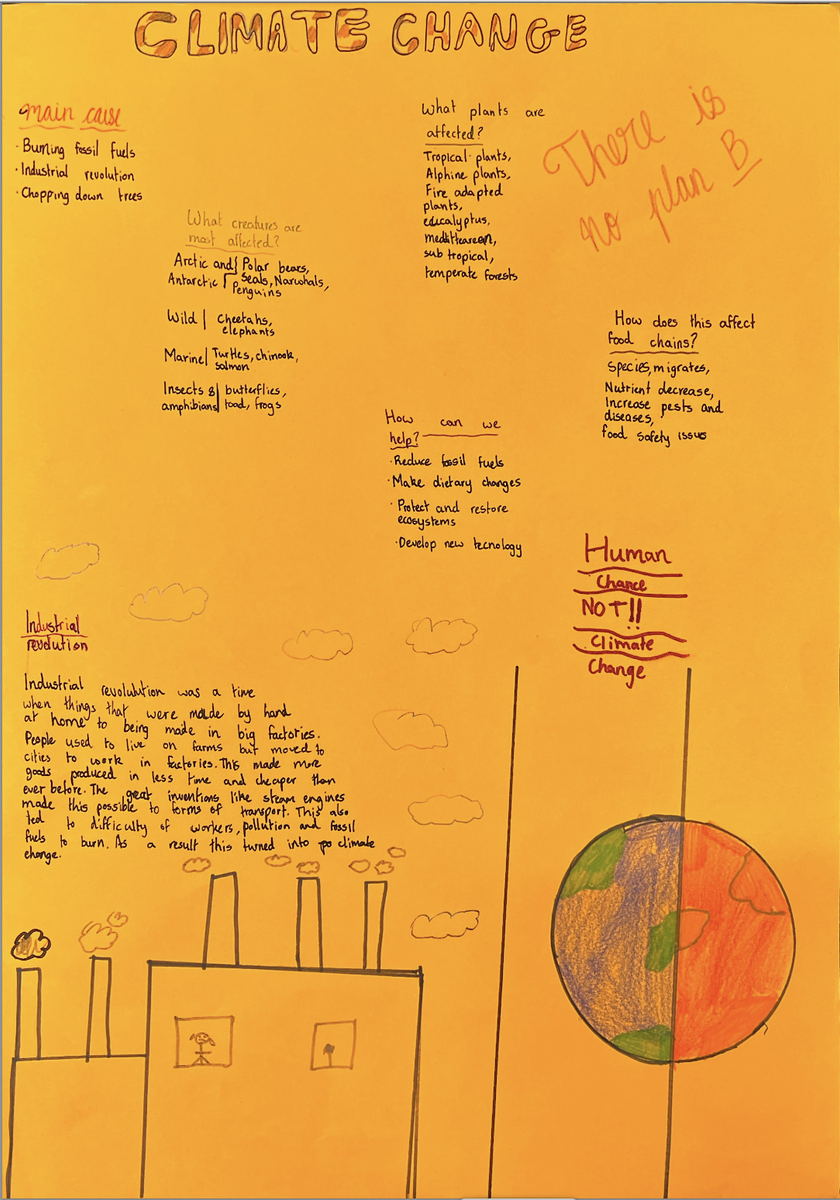 CLIMATE CHANGE
main cause
· Burning fossil fuels
· Industrial revolution
· Chopping down trees
What creatures are
most affected?
Arctic and Polar bears,
Antarctic Seals, Narwhals,
Penguins
Wild | Cheetahs,
elephants
Marine | Turtles, chinook,
salmon
Insects & | butterflies,
amphibians | toad, frogs
What plants are
affected?
Tropical plants,
Alphine plants,
Fire adapted
plants,
edcalyptus,
meditteareon,
sub tropical,
temperate forests
There is
no plan B
How does this affect
food chains?
Species, migrates,
Nutrient decrease,
Increase pests and
diseases,
food safety issues
How can we
help?
· Reduce fossil fuels
· Make dietary changes
· Protect and restore
ecosystems
· Develop new tecnology
Human
Chance
NOT!!
Climate
Change
Industrial
revolution
Industrial revolulution was a time
when things that were made by hand
at home to being made in big factories.
People used to live on farms but moved to
cities to work in factories. This made more
goods produced in less time and cheaper than
ever before. The great inventions like steam engines
made this possible to forms of transport. This also
led to difficulty of workers, pollution and fossil
fuels to burn. As a result this turned into climate
change.